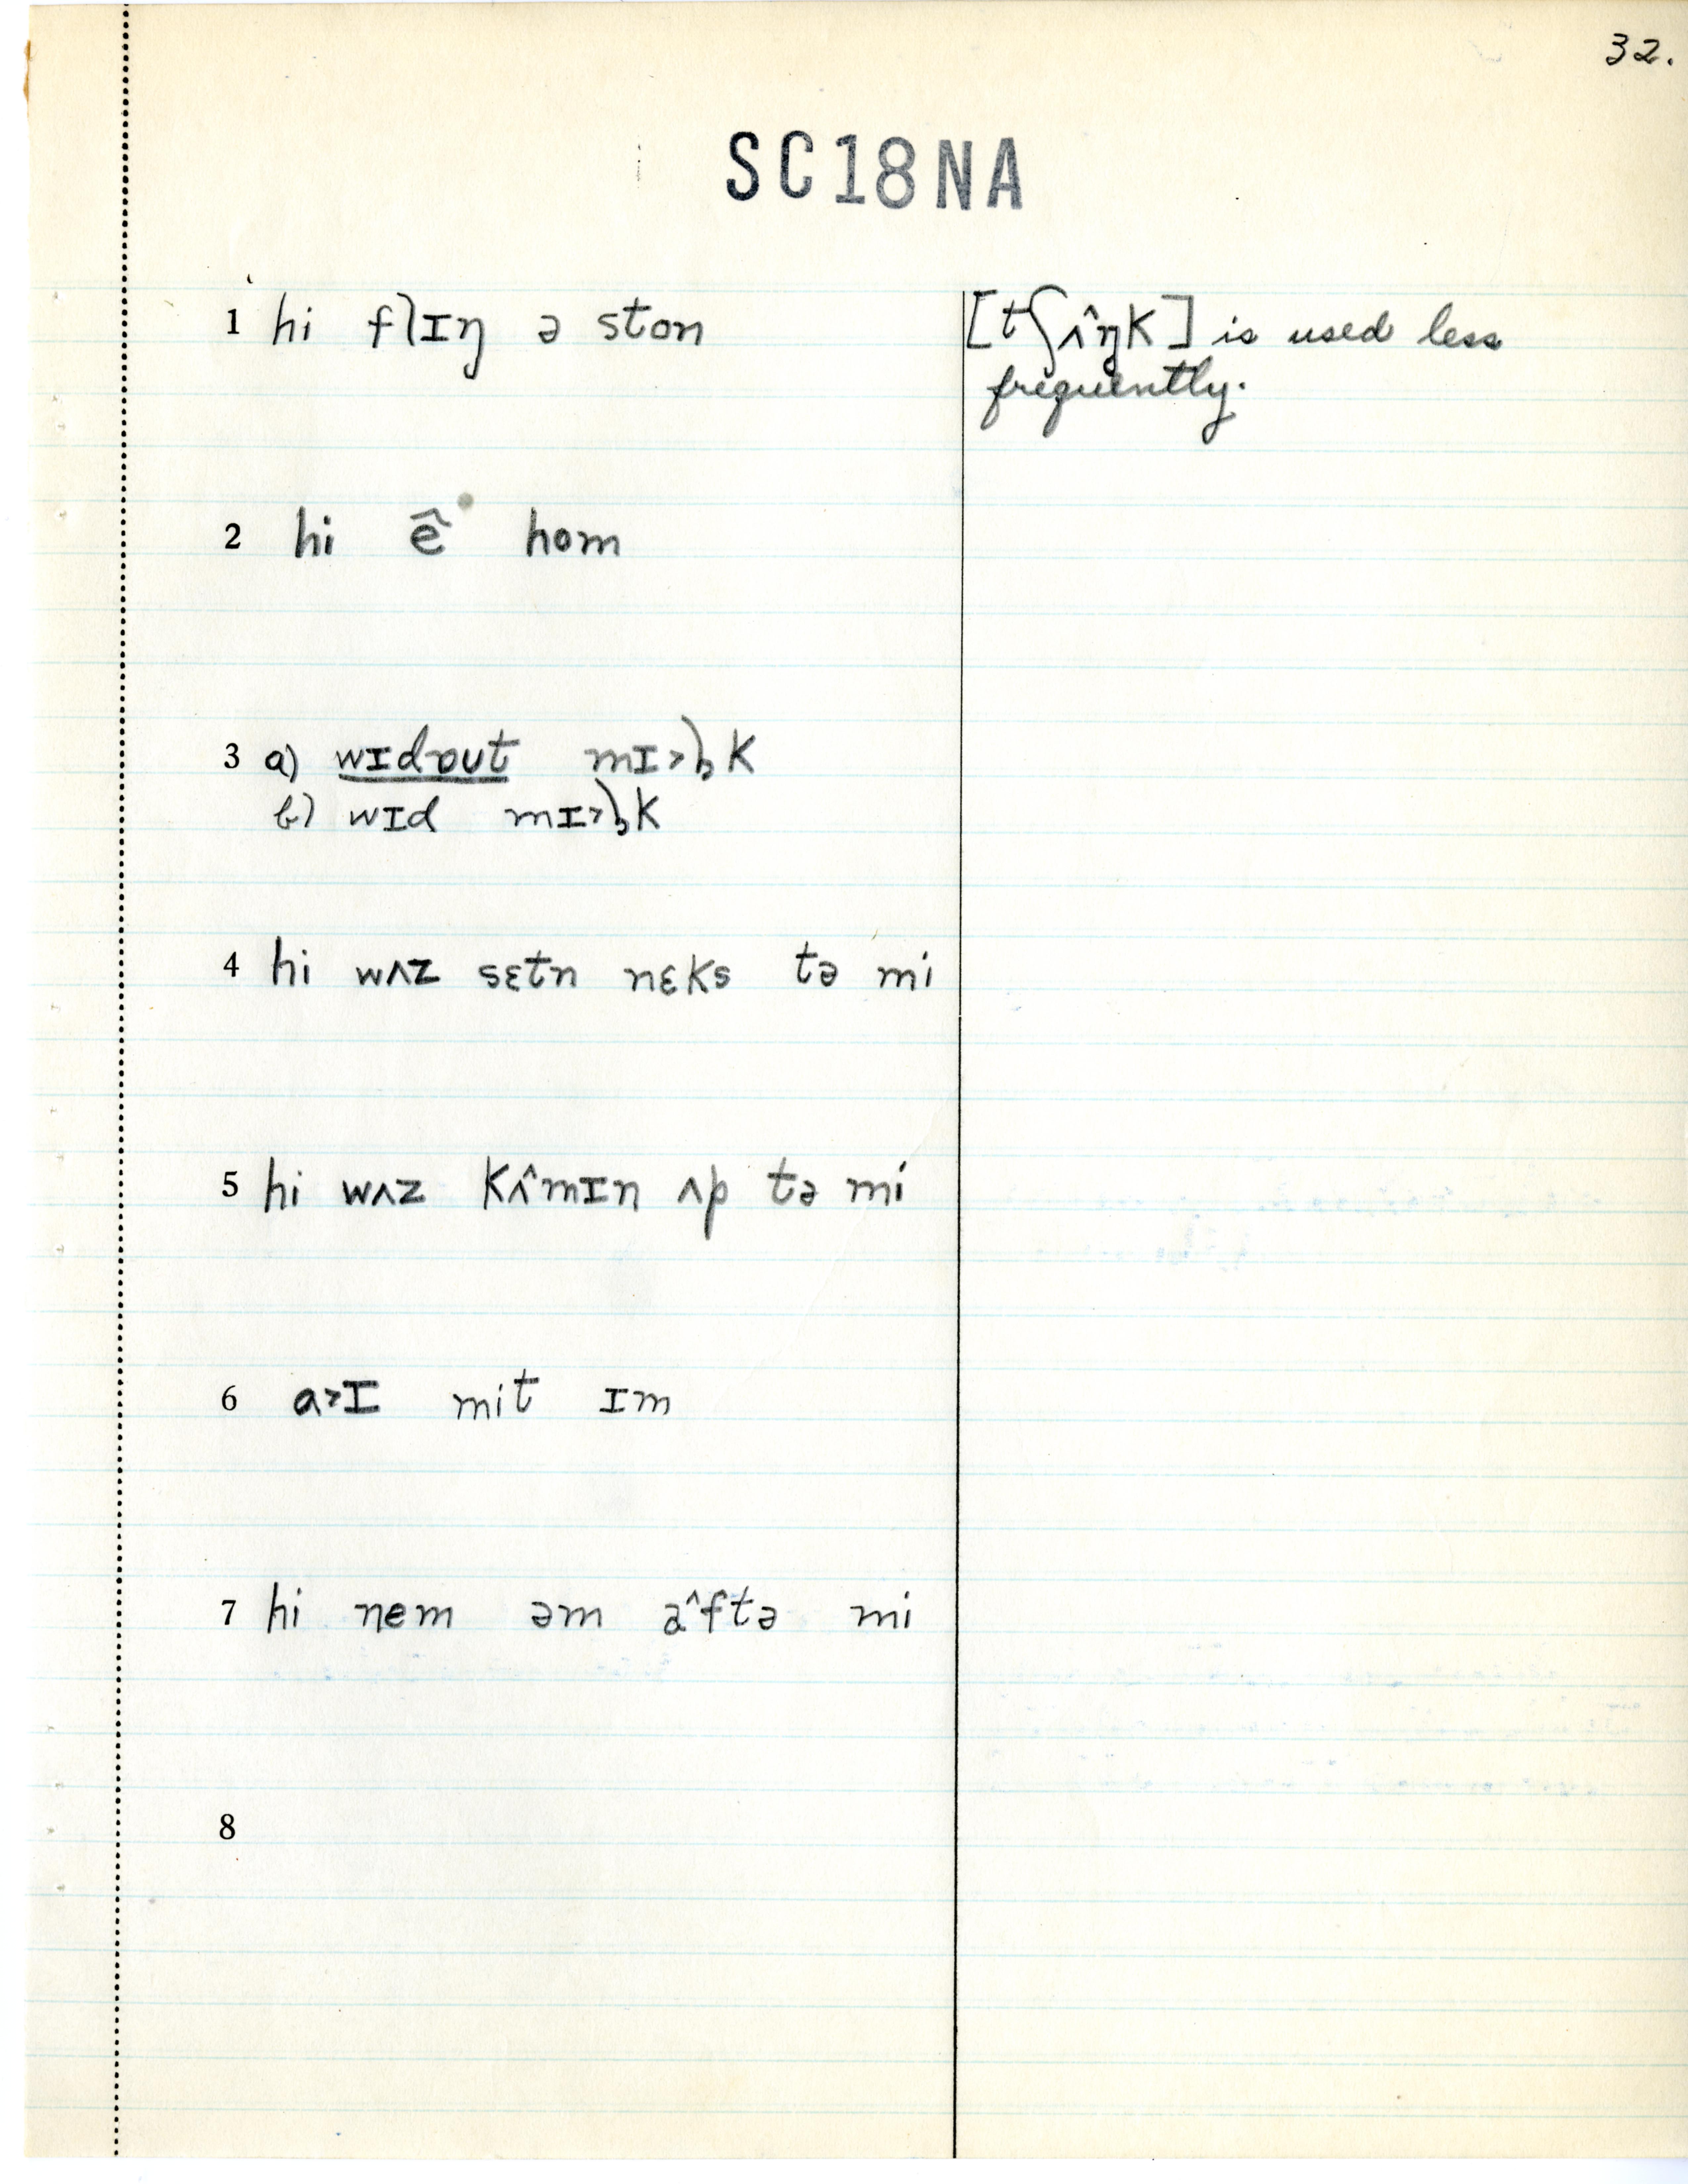 32.
SC18NA
1 hi flɪŋ ə ston
[tʃʌ̂ŋk] is used less
frequently.
2 hi ẽ hom
3 a) wɪdɒut mɪ>lk
b) wɪd mɪ>lk
4 hi wʌz sɛtn nɛks tə mi
5 hi wʌz kʌ̂mɪn ʌp tə mi
6 a>ɪ mit ɪm
7 hi nem əm a^ftə mi
8